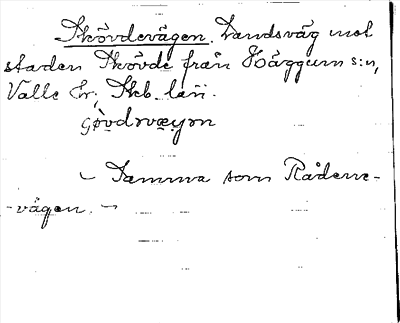 Skövdevägen. Landsväg mot
staden Skövde från Häggum s:n,
Valle hr; Skb. län.
– Samma som Rådene-
-vägen. –